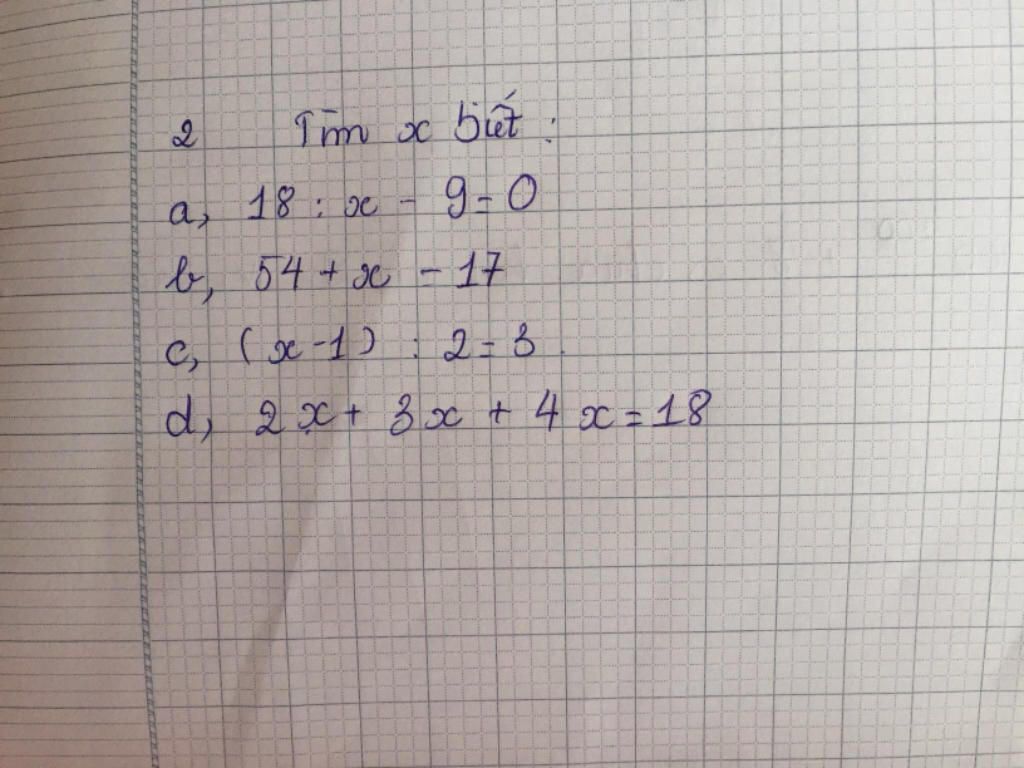 2 Tìm x biết :
a, 18 : x - 9 = 0
b, 54 + x = 17
c, (x - 1) : 2 = 3
d, 2x + 3x + 4x = 18